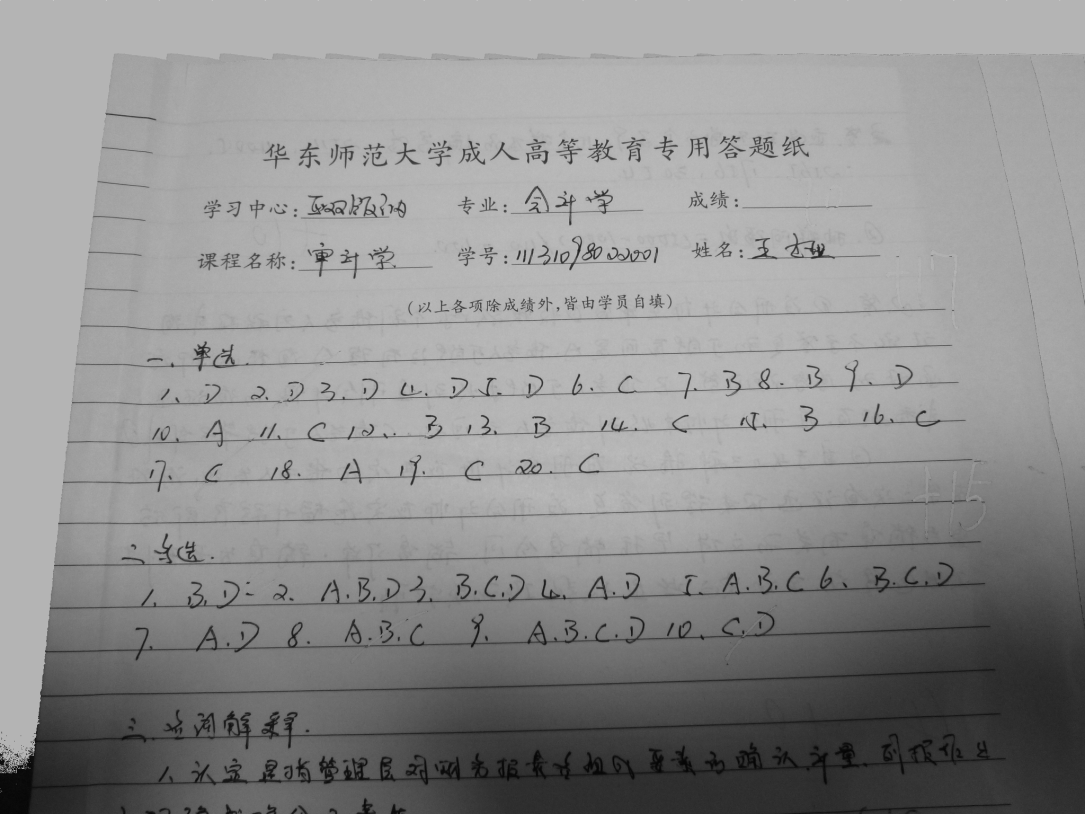 华东师范大学成人高等教育专用答题纸
学习中心: 专业: 会计学 成绩:
课程名称: 审计学 学号: 姓名: 王
(以上各项除成绩外,皆由学员自填)
一、单选.
1、D 2、D 3、D 4、D 5、D 6、C 7、B 8、B 9、D
10、A 11、C 12、B 13、B 14、C 15、B 16、C
17、C 18、A 19、C 20、C
二、多选.
1、B.D 2、A.B.D 3、B.C.D 4、A.D 5、A.B.C 6、B.C.D
7、A.D 8、A.B.C 9、A.B.C.D 10、C.D
三、名词解释.
1、认定是指管理层对财务报表各组成要素的确认、计量、列报作出
+15